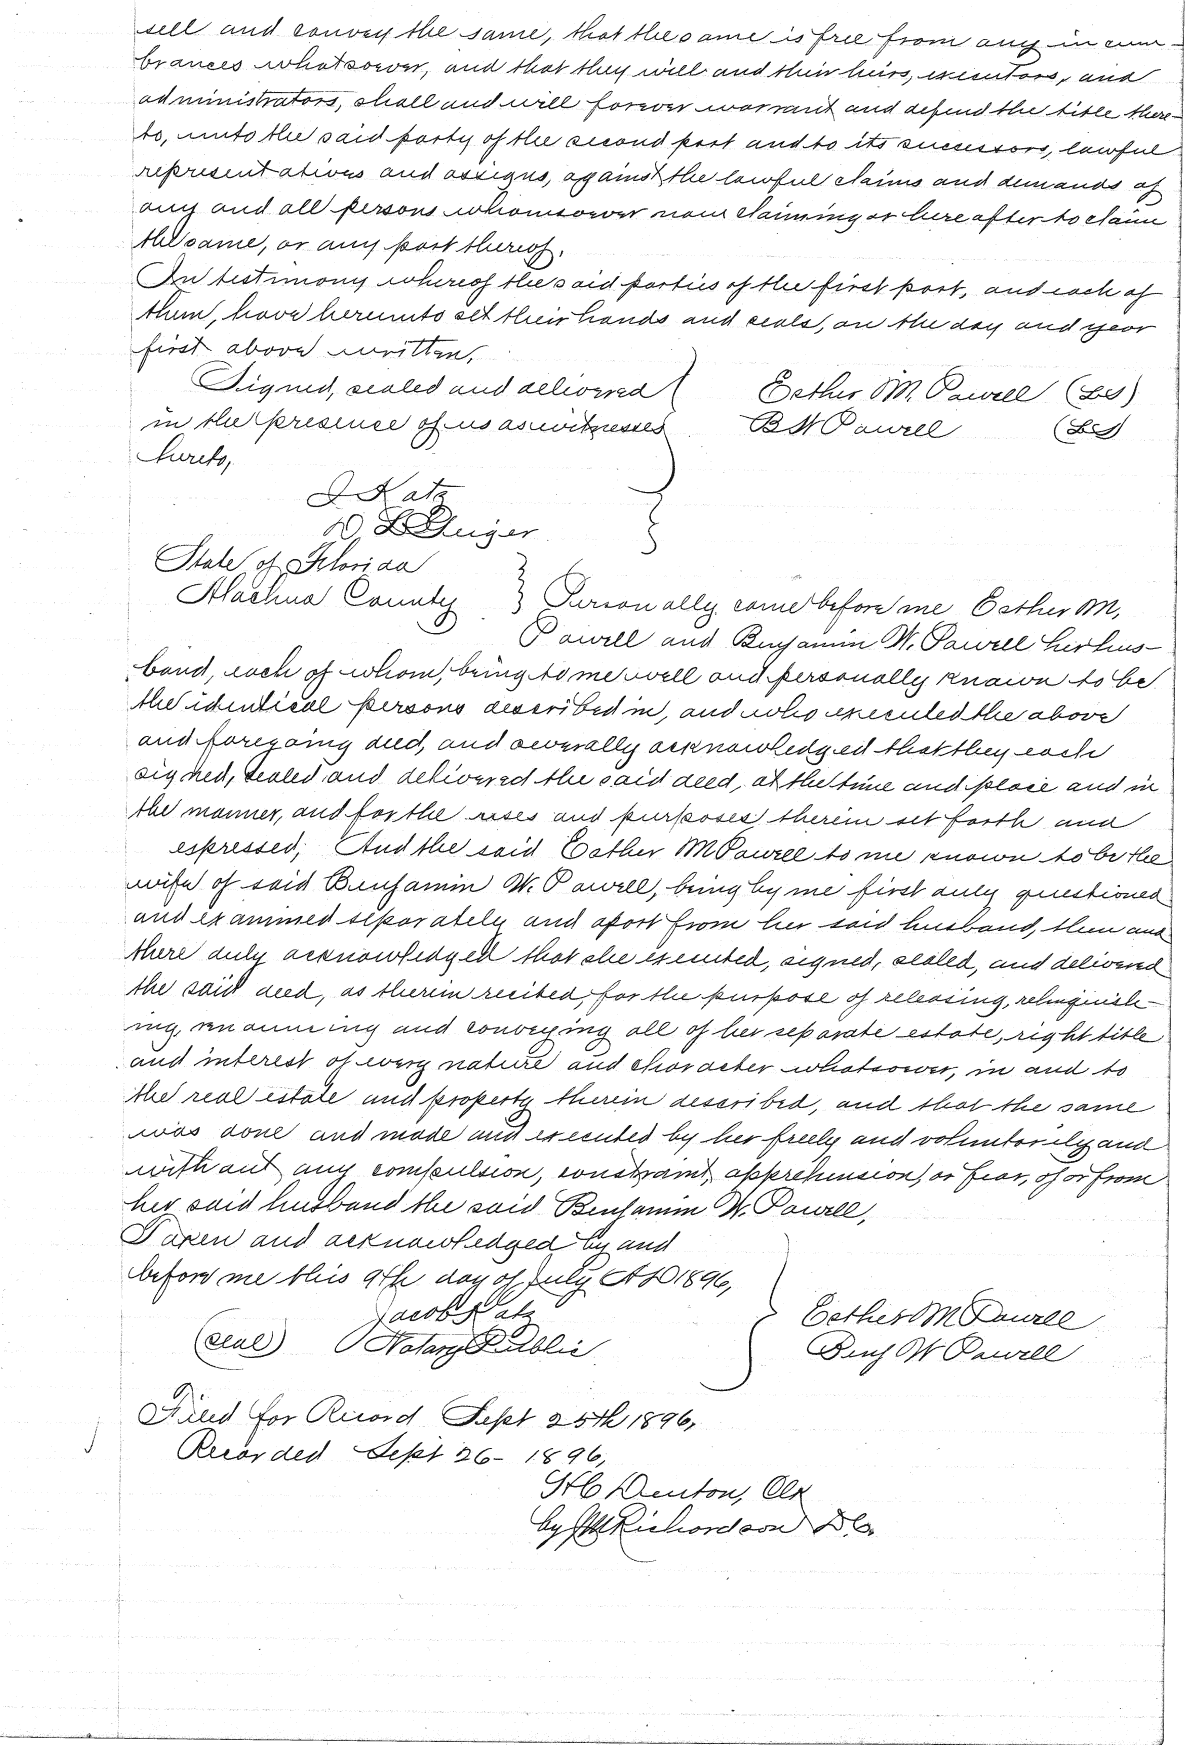 sell and convey the same, that the same is free from any incum-
brances whatsoever, and that they will and their heirs, executors, and
administrators, shall and will forever warrant and defend the title there-
to, unto the said party of the second part and to its successors, lawful
representatives and assigns, against the lawful claims and demands of
any and all persons whomsoever now claiming or hereafter to claim
the same, or any part thereof.
In testimony whereof the said parties of the first part, and each of
them, have hereunto set their hands and seals, on the day and year
first above written.
Signed, sealed and delivered Esther M. Powell (LS)
in the presence of us as witnesses B W Powell (LS)
hereto,
J Katz
State of Florida
Alachua County } Personally came before me Esther M.
Powell and Benjamin W. Powell her hus-
band, each of whom, being to me well and personally known to be
the identical persons described in, and who executed the above
and foregoing deed, and severally acknowledged that they each
signed, sealed and delivered the said deed, at the time and place and in
the manner, and for the uses and purposes therein set forth and
expressed; And the said Esther M Powell to me known to be the
wife of said Benjamin W. Powell, being by me first duly questioned
and examined separately and apart from her said husband, then and
there duly acknowledged that she executed, signed, sealed, and delivered
the said deed, as therein recited, for the purpose of releasing, relinquish-
ing, renouncing and conveying all of her separate estate, right title
and interest of every nature and character whatsoever, in and to
the real estate and property therein described, and that the same
was done and made and executed by her freely and voluntarily and
without any compulsion, constraint, apprehension, or fear, of or from
her said husband the said Benjamin W. Powell,
Taken and acknowledged by and
before me this 9th day of July A D 1896,
Jacob Katz Esther M Powell
(seal) Notary Public Benj W Powell
Filed for Record Sept 25th 1896,
Recorded Sept 26- 1896,
H C Denton, Clk
by J M Richardson D C.